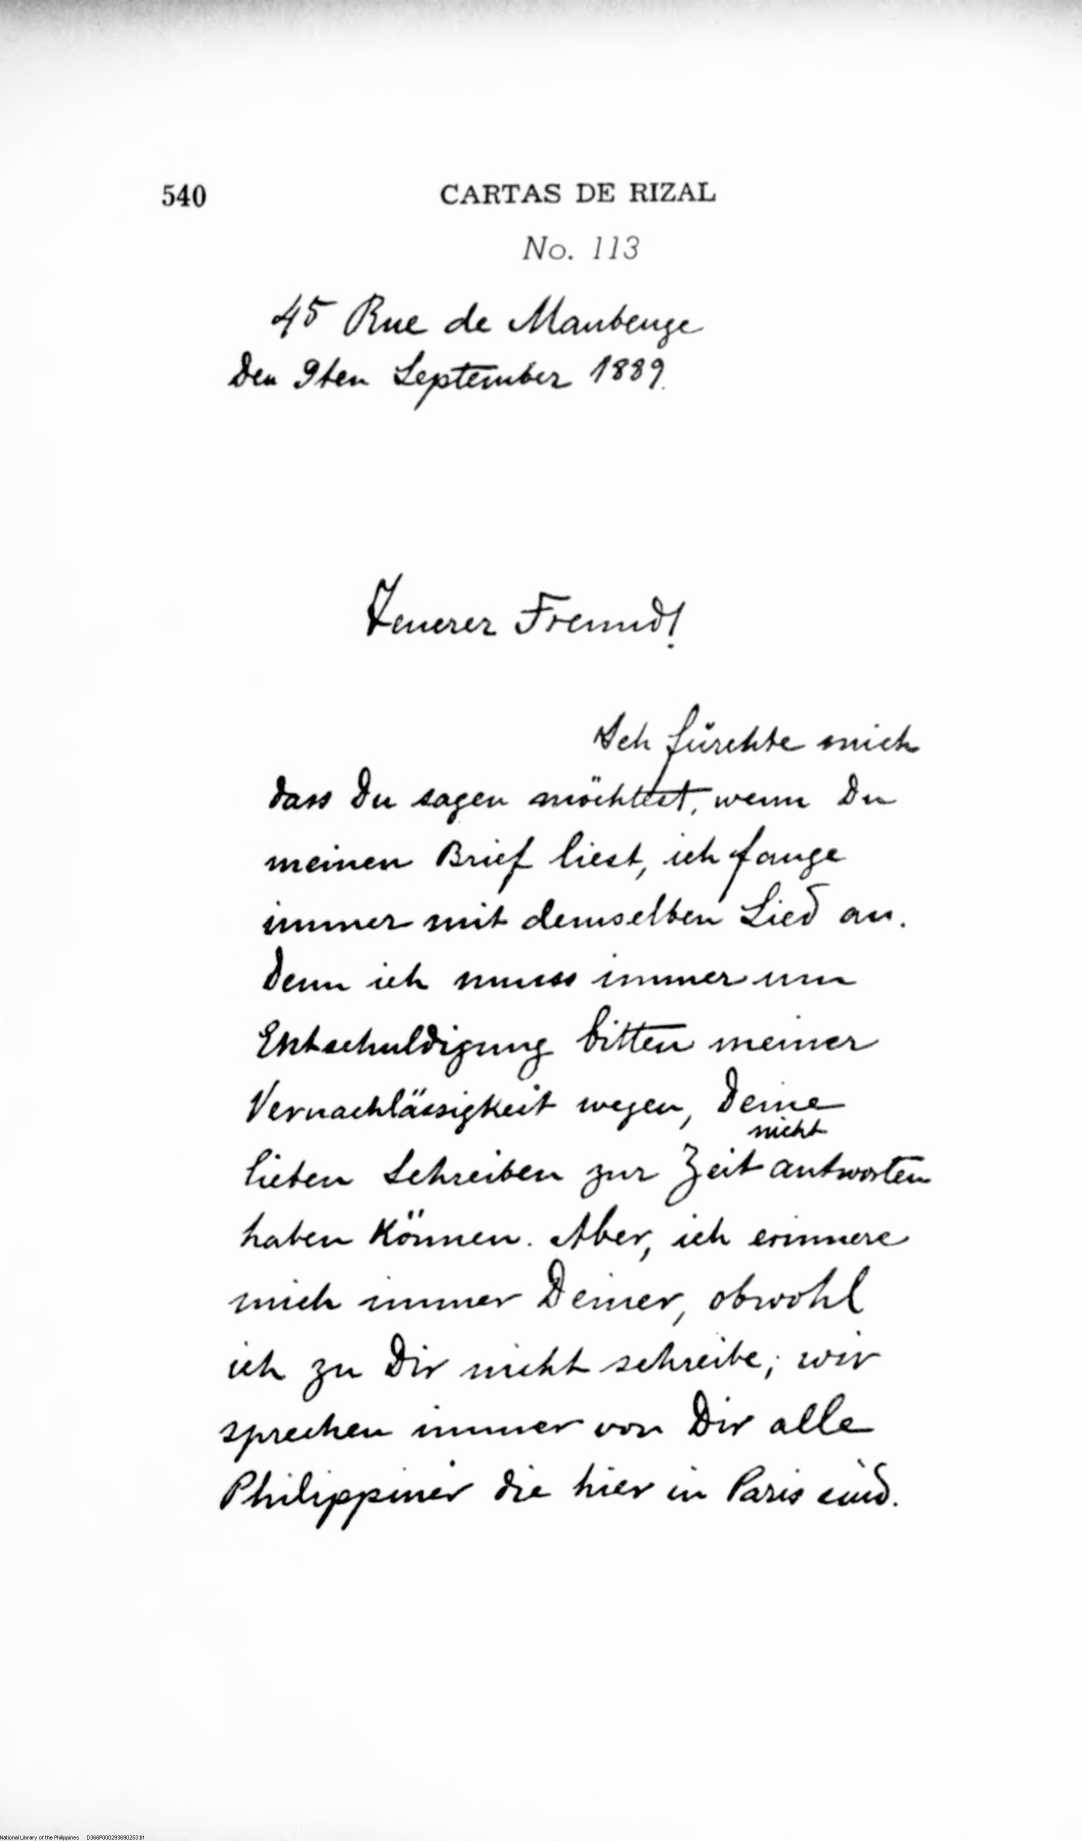 540 CARTAS DE RIZAL
No. 113
45 Rue de Maubeuge
Den 9ten September 1889.
Teuerer Freund!
Ich fürchte mich
dass Du sagen möchtest, wenn Du
meinen Brief liest, ich fange
immer mit demselben Lied an.
Denn ich muss immer um
Entschuldigung bitten meiner
Vernachlässigkeit wegen, Deine
nicht
lieben Schreiben zur Zeit antworten
haben können. Aber, ich erinnere
mich immer Deiner, obwohl
ich zu Dir nicht schreibe; wir
sprechen immer von Dir alle
Philippiner die hier in Paris sind.
National Library of the Philippines